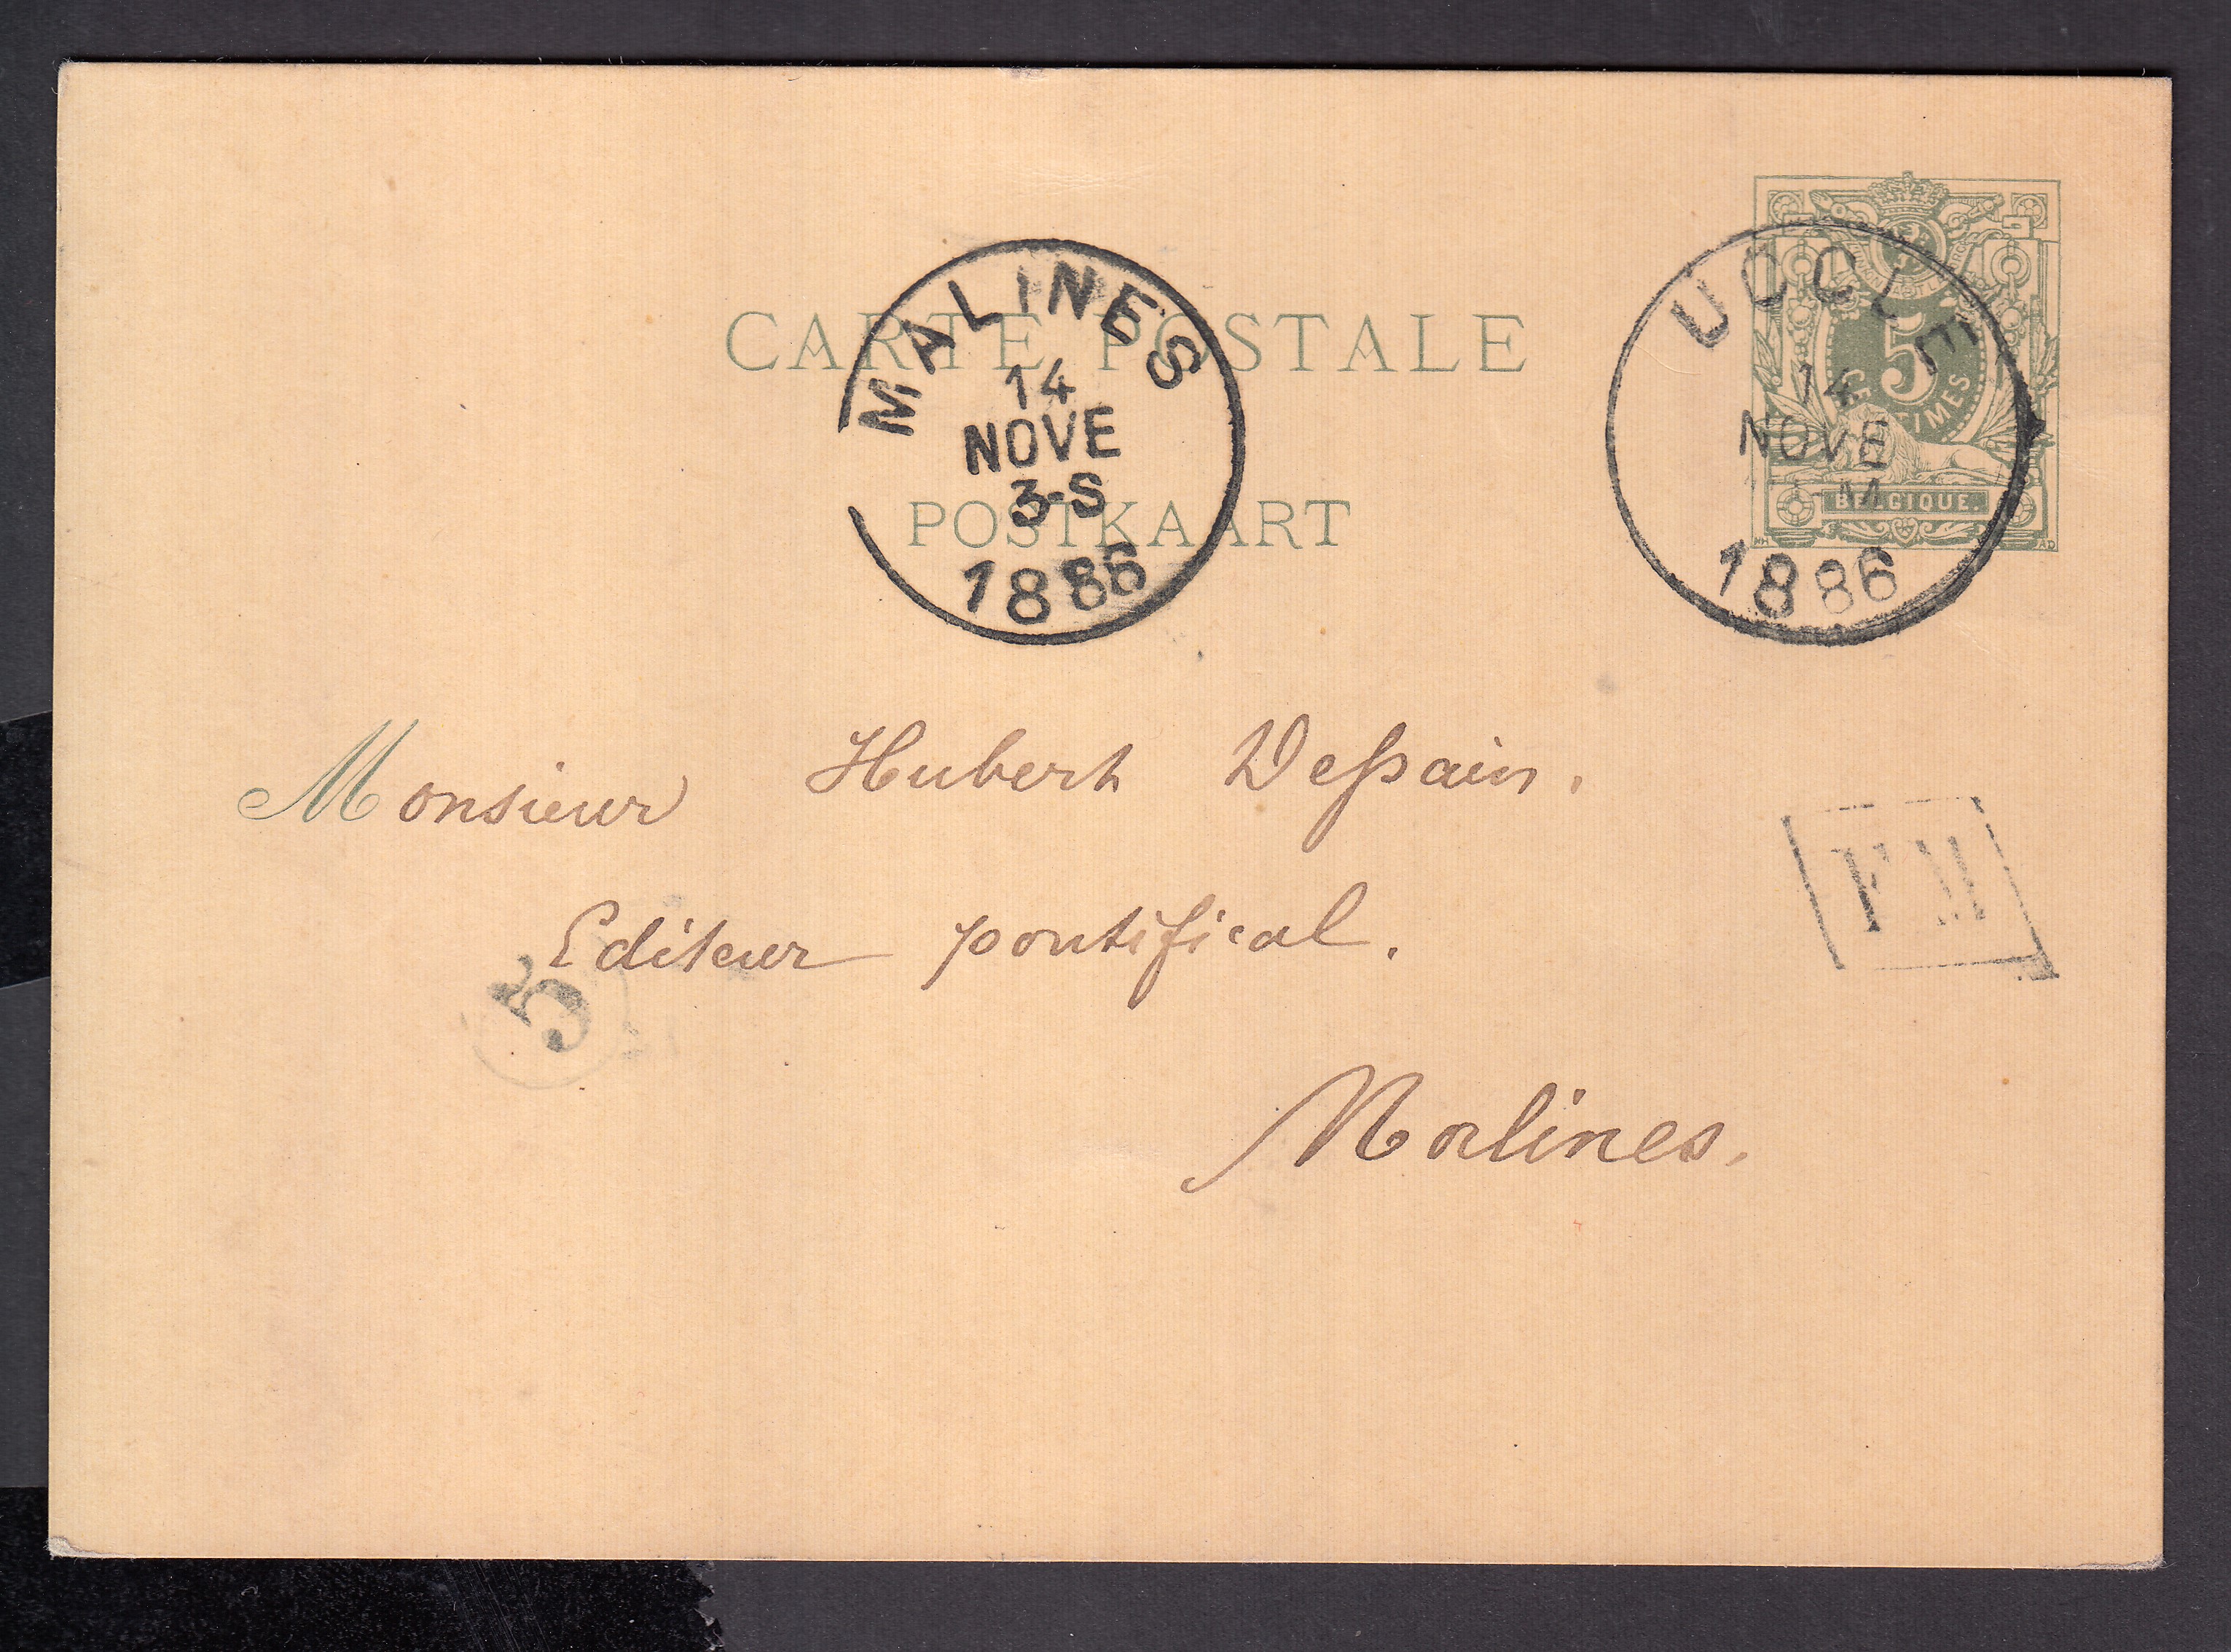 CARTE POSTALE
POSTKAART
MALINES
14
NOVE
3-S
1886
UCCLE
14
NOVE
M
1886
5
CENTIMES
BELGIQUE.
NH
AD
Monsieur Hubert Dessain.
Editeur pontifical.
Malines.
FM
5